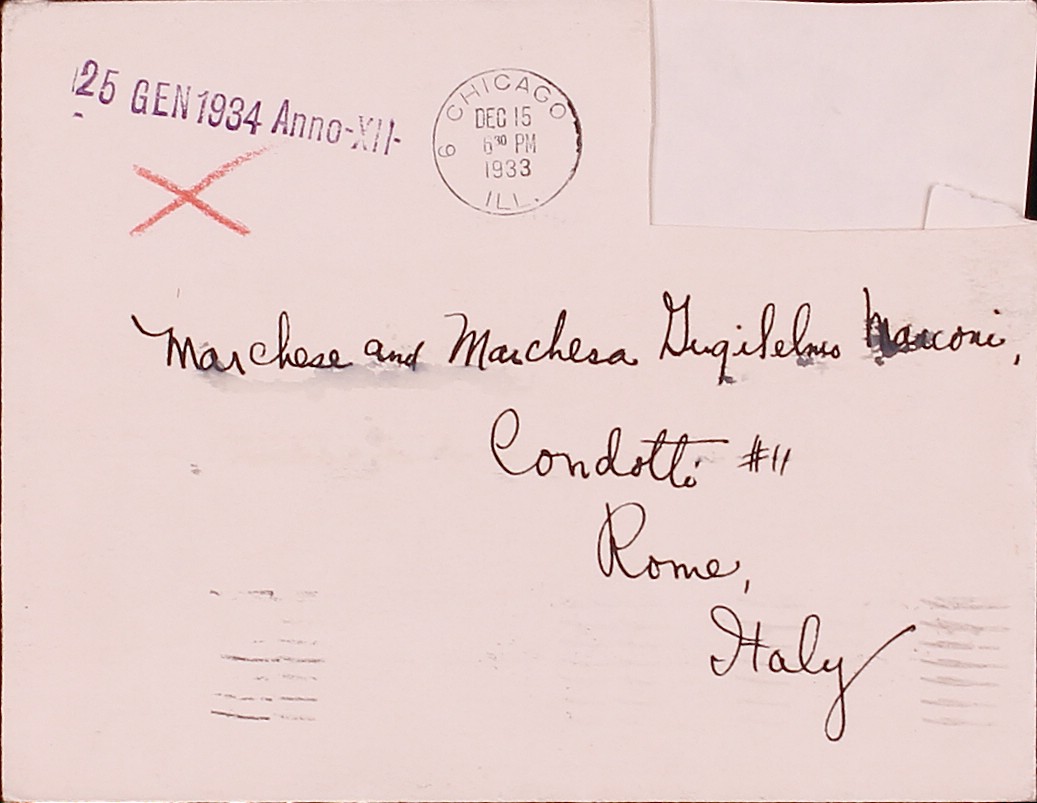 25 GEN 1934 Anno-XII-
CHICAGO
DEC 15
6 30 PM
1933
ILL.
6
Marchese and Marchesa Gugilelmo Marconi,
Condotti #11
Rome,
Italy